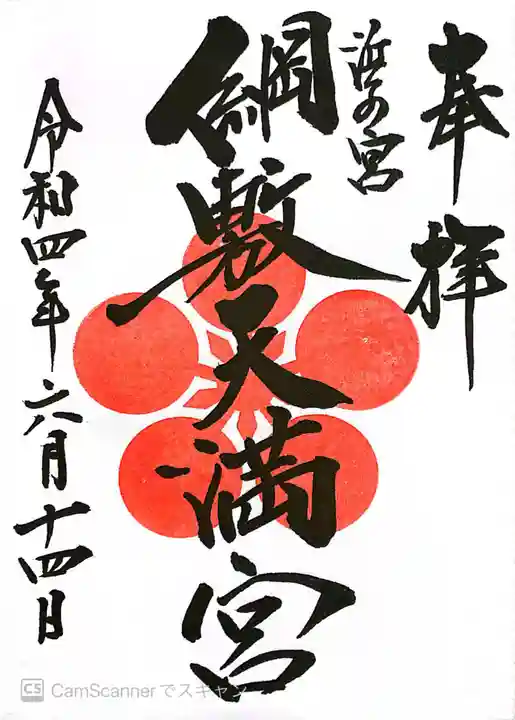 奉拝
浜の宮
綱敷天満宮
令和四年六月十四日
CS CamScannerでスキャン